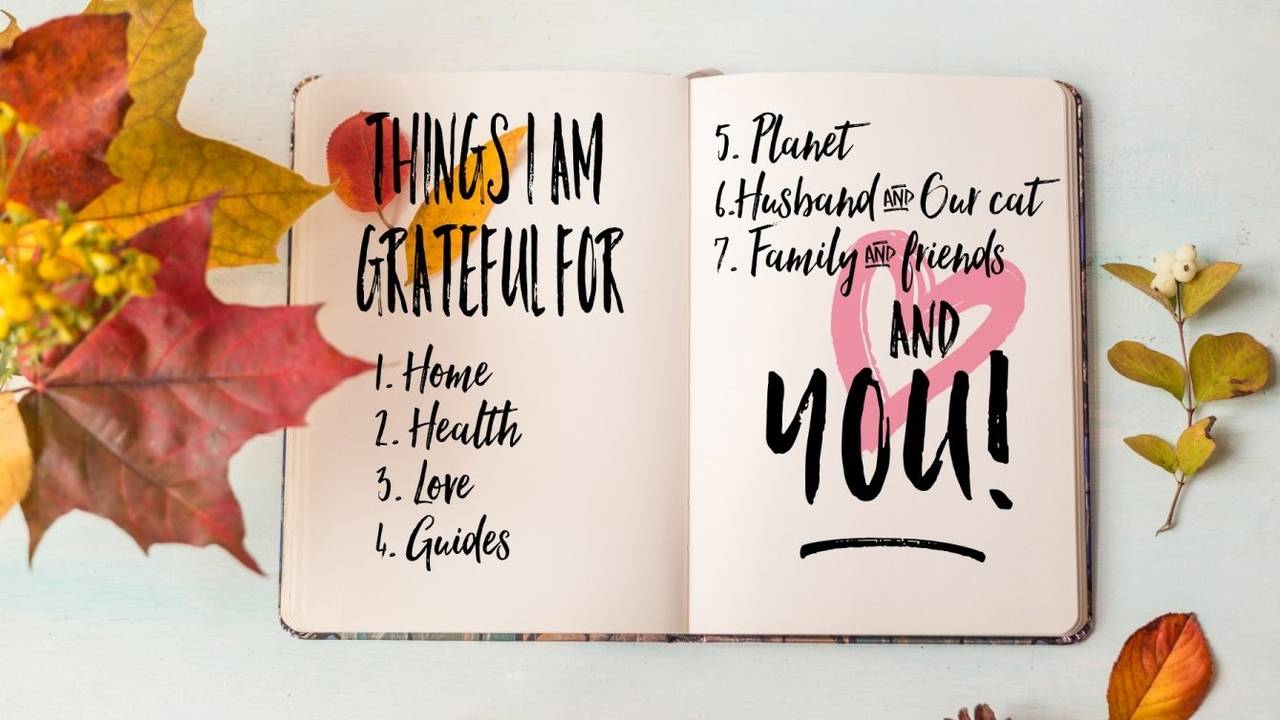 THINGS I AM
GRATEFUL FOR
1. Home
2. Health
3. Love
4. Guides
5. Planet
6. Husband AND Our cat
7. Family AND friends
AND
YOU!